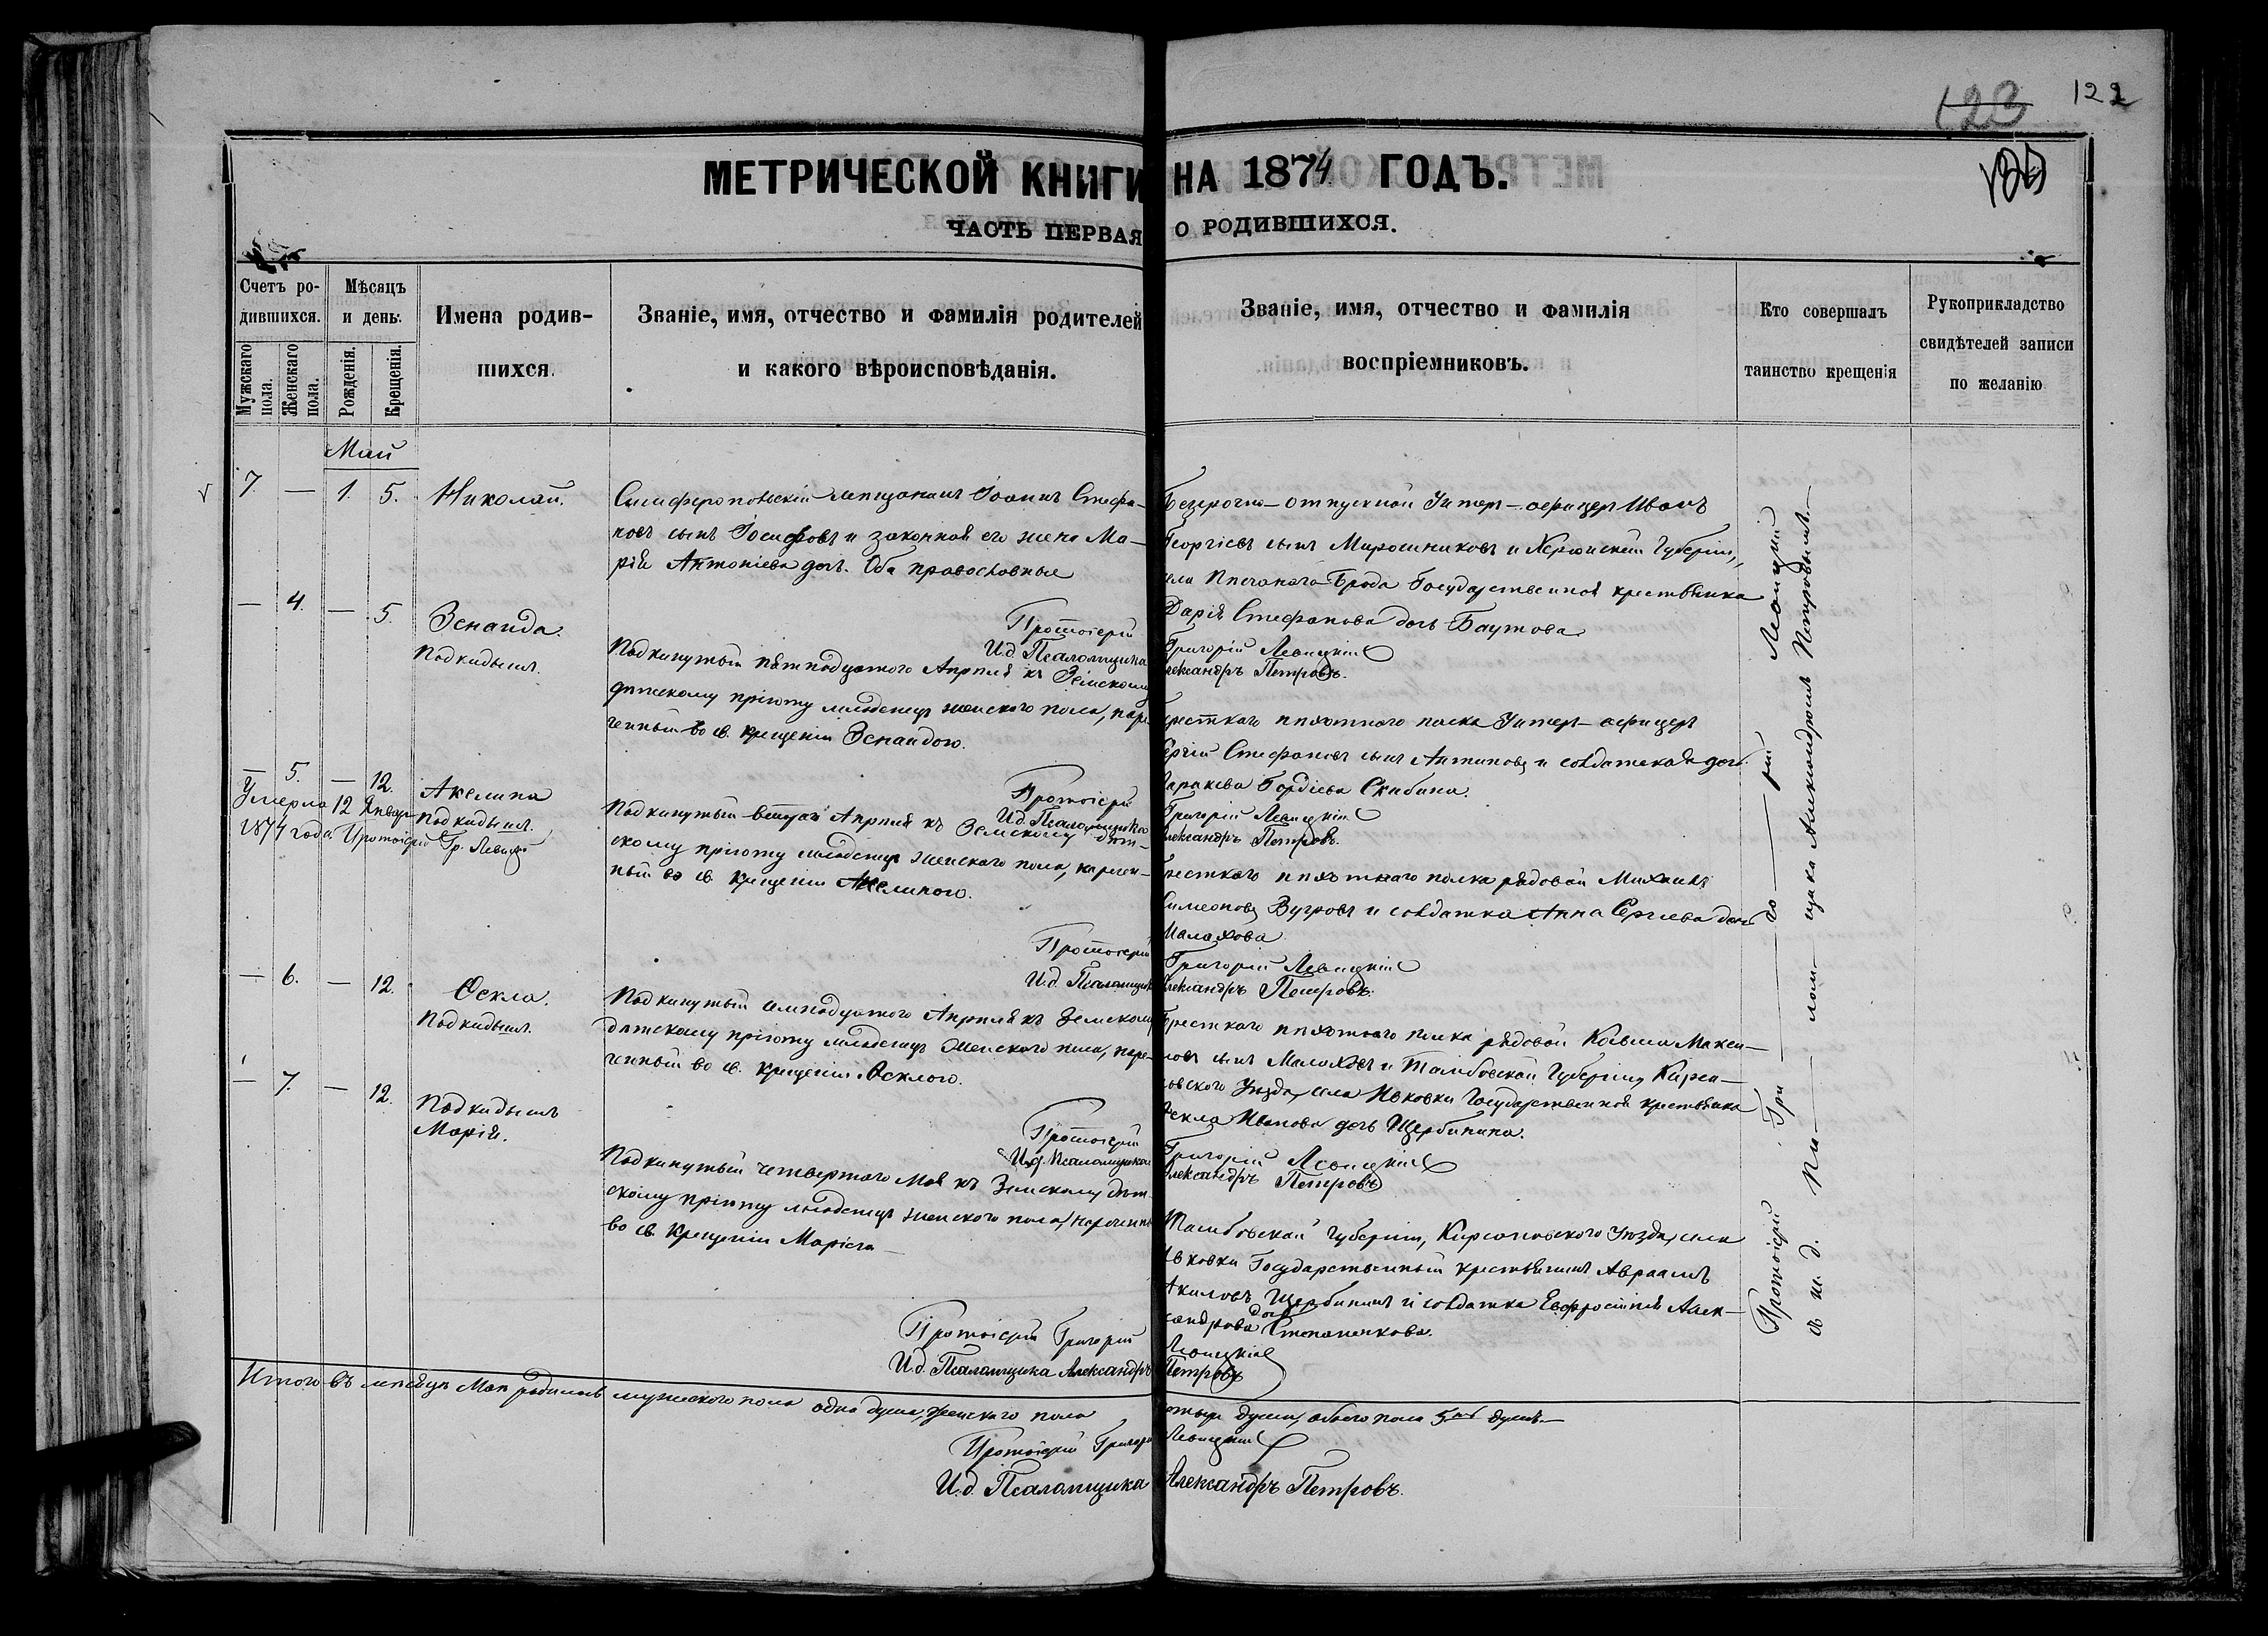 123 122
МЕТРИЧЕСКОЙ КНИГИ НА 1874 ГОДЪ.
ЧАСТЬ ПЕРВАЯ О РОДИВШИХСЯ.
Счетъ ро-
дившихся.
Мужскаго пола.
Женскаго пола.
Мѣсяцъ
и день.
Рожденія.
Крещенія.
Имена родив-
шихся.
Званіе, имя, отчество и фамилія родителей
и какого вѣроисповѣданія.
Званіе, имя, отчество и фамилія
воспріемниковъ.
Кто совершалъ
таинство крещенія
Рукоприкладство
свидѣтелей записи
по желанію
Май
7. — 1. 5. Николай.
Симферопольскій мещанинъ Іоаннъ Стефа-
новъ сынъ Іосифовъ и законная его жена Ма-
рія Антоніева дочь. Оба православные
Безсрочно-отпускной Унтеръ-офицеръ Иванъ
Георгіевъ сынъ Мирошниковъ и Херсонской Губерніи,
села Песчанаго Брода Государственная крестьянка
Дарія Стефанова дочь Баутова
Протоіерей Григорій Левицкій
И.д. Псаломщика Александръ Петровъ.
— 4. — 5. Зенаида.
Подкидышъ.
Подкинутый пятнадцатого Апрѣля къ Земскому
дѣтскому пріюту младенецъ женскаго пола, наре-
ченный во св. крещеніи Зенаидою.
Брестскаго пѣхотнаго полка Унтеръ-офицеръ
Сергій Стефановъ сынъ Антиповъ и солдатская дочь
Параскева Гордіева Скибина.
Протоіерей Григорій Левицкій
И.д. Псаломщика Александръ Петровъ.
— 5. — 12. Акелина
Подкидышъ.
Умерла 12 Января
1877 года. Протоіерей Гр. Левицкій
Подкинутый Апрѣля къ Земскому дѣт-
скому пріюту младенецъ женскаго пола, наречен-
ный во св. крещеніи Акелиною.
Брестскаго пѣхотнаго полка рядовой Михаилъ
Симеоновъ Вугровъ и солдатка Анна Сергіева дочь
Малахова
Протоіерей Григорій Левицкій
И.д. Псаломщика Александръ Петровъ.
— 6. — 12. Ѳекла.
Подкидышъ.
Подкинутый семнадцатого Апрѣля къ Земскому
дѣтскому пріюту младенецъ женскаго пола, наре-
ченный во св. крещеніи Ѳеклою.
Брестскаго пѣхотнаго полка рядовой Косьма Макси-
мовъ сынъ Малаховъ и Тамбовской Губерніи, Кирса-
новскаго Уѣзда, села Ивковки Государственная крестьянка
Ѳекла Иванова дочь Щербинина.
Протоіерей Григорій Левицкій
И.д. Псаломщика Александръ Петровъ
— 7. — 12. Подкидышъ
Марія.
Подкинутый четвертаго Мая къ Земскому дѣт-
скому пріюту младенецъ женскаго пола, нареченный
во св. крещеніи Маріею
Тамбовской Губерніи, Кирсановскаго Уѣзда, села
Ивковки Государственный крестьянинъ Авраамъ
Акиловъ Щербининъ и солдатка Евфросинія Алек-
сандрова дочь Степаненкова.
Протоіерей Григорій Левицкій
И.д. Псаломщика Александръ Петровъ
Протоіерей Григорій Левицкій
съ и. д. псаломщика Александромъ Петровымъ.
Итого въ мѣсяцѣ Маѣ родилось мужескаго пола одна душа, женскаго пола четыре души, обоего пола 5ть душъ.
Протоіерей Григорій Левицкій
И.д. Псаломщика Александръ Петровъ.